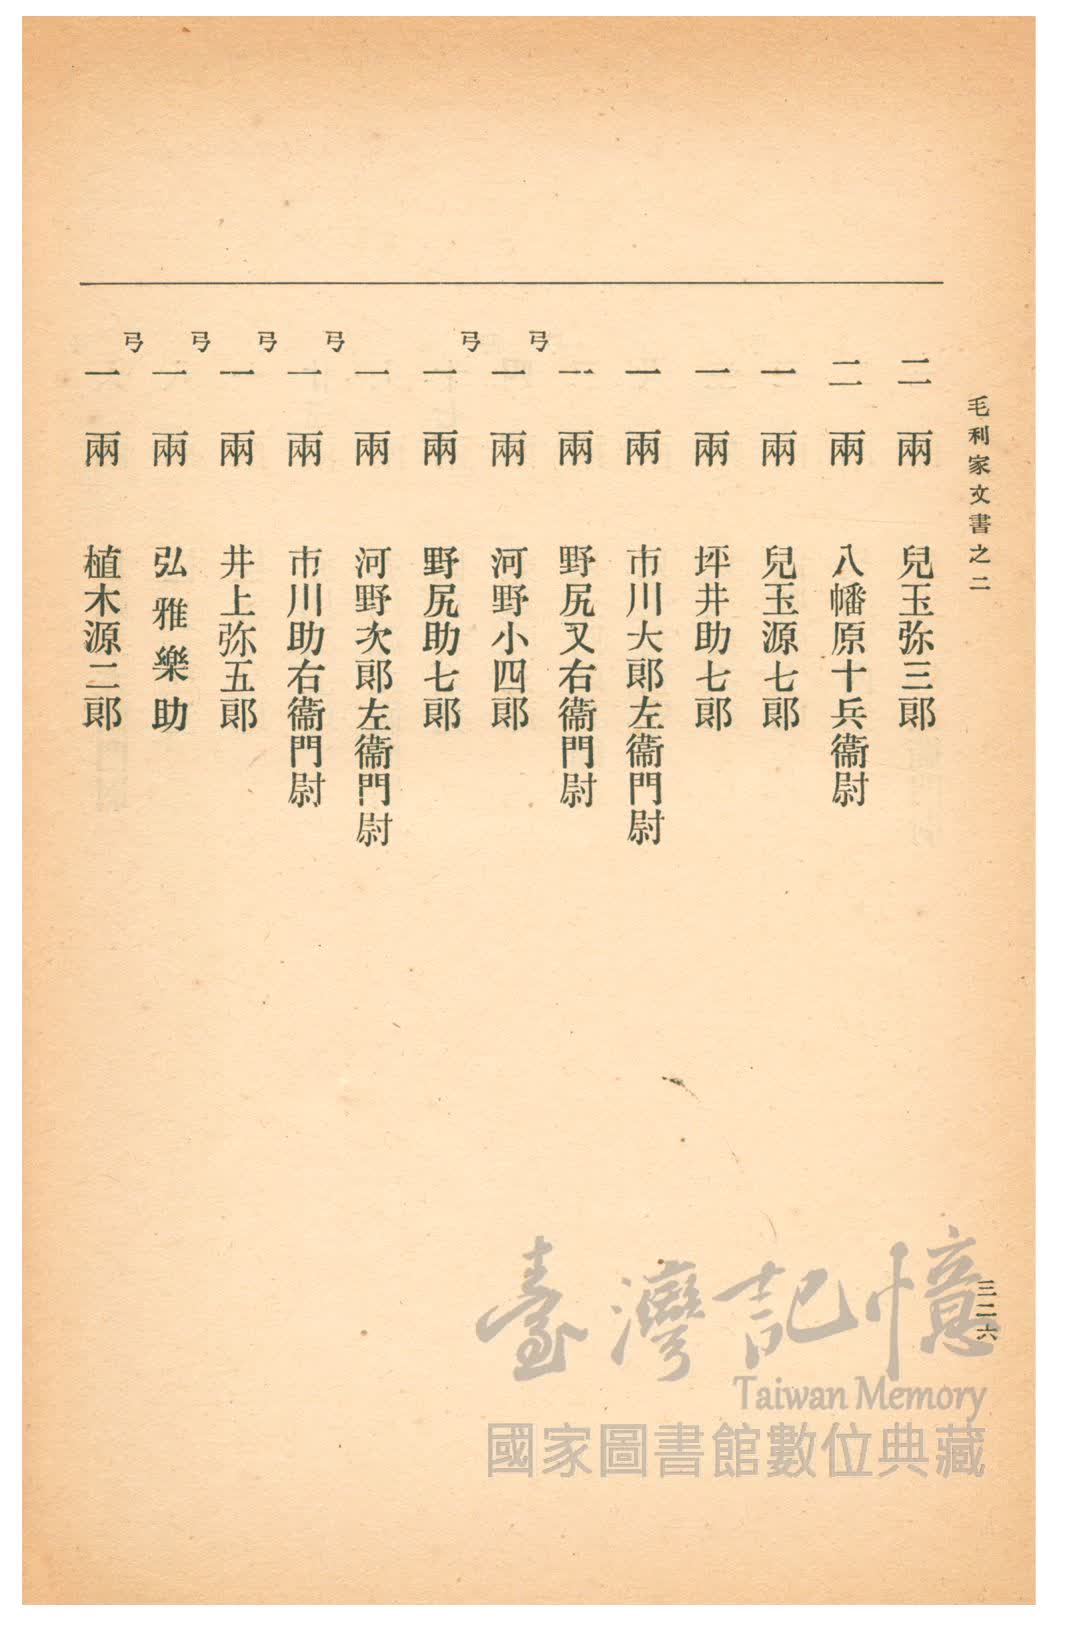 毛利家文書之二
二兩 兒玉弥三郎
二兩 八幡原十兵衞尉
一兩 兒玉源七郎
一兩 坪井助七郎
一兩 市川大郎左衞門尉
一兩 野尻又右衞門尉
弓
一兩 河野小四郎
弓
一兩 野尻助七郎
一兩 河野次郎左衞門尉
弓
一兩 市川助右衞門尉
弓
一兩 井上弥五郎
弓
一兩 弘雅樂助
弓
一兩 植木源二郎
三二六
臺灣記憶
Taiwan Memory
國家圖書館數位典藏